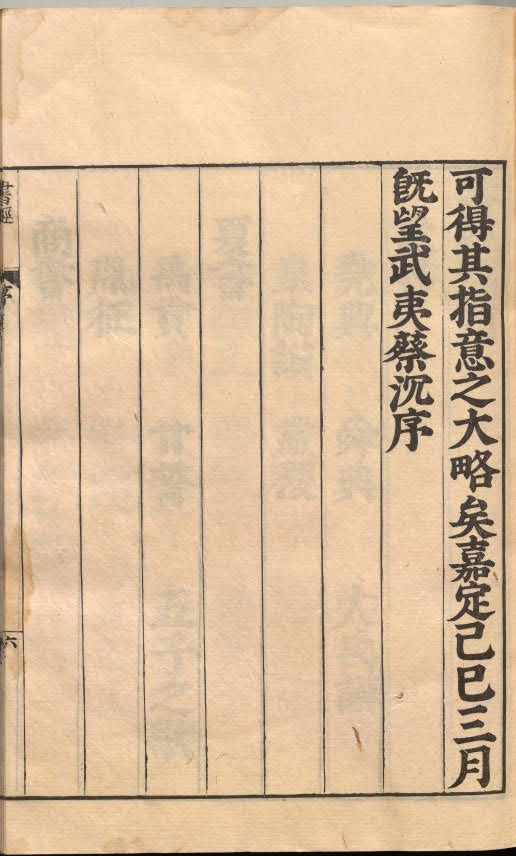 可得其指意之大略矣嘉定己巳三月
既望武夷蔡沉序
書經
序
六